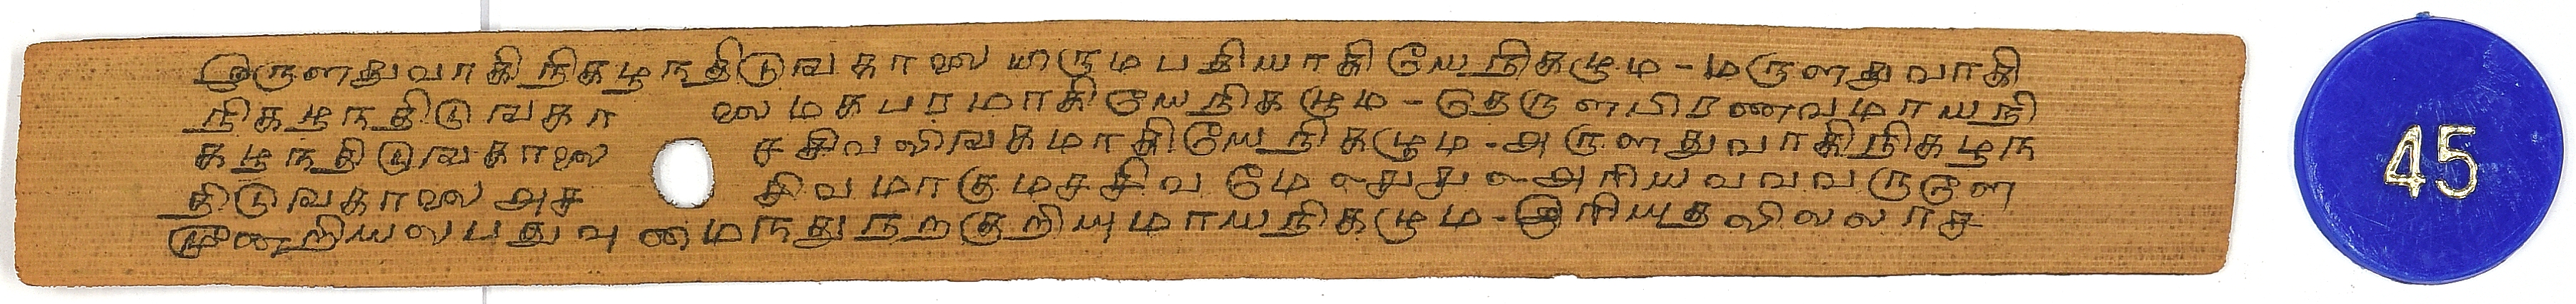 இருளதுவாகிநிகழநதிடுஙகாலையிருமபதியாகியேநிகழும-மருளதுவாகி
நிகழநதிடுஙகாலைமகபரமாகியேநிகழும-தெருளபிரணவமாயநி
கழநதிடுஙகாலைசதிவலிஙகமாகியேநிகழும-அருளதுவாகிநிகழந
திடுஙகாலைஅசதிவமாகுமசதிவமே அரியவவவருளெ
மூணறியலபதுவுணமநதுநறகுறியுமாயநிகழும-இரியுதலிலலாச
45